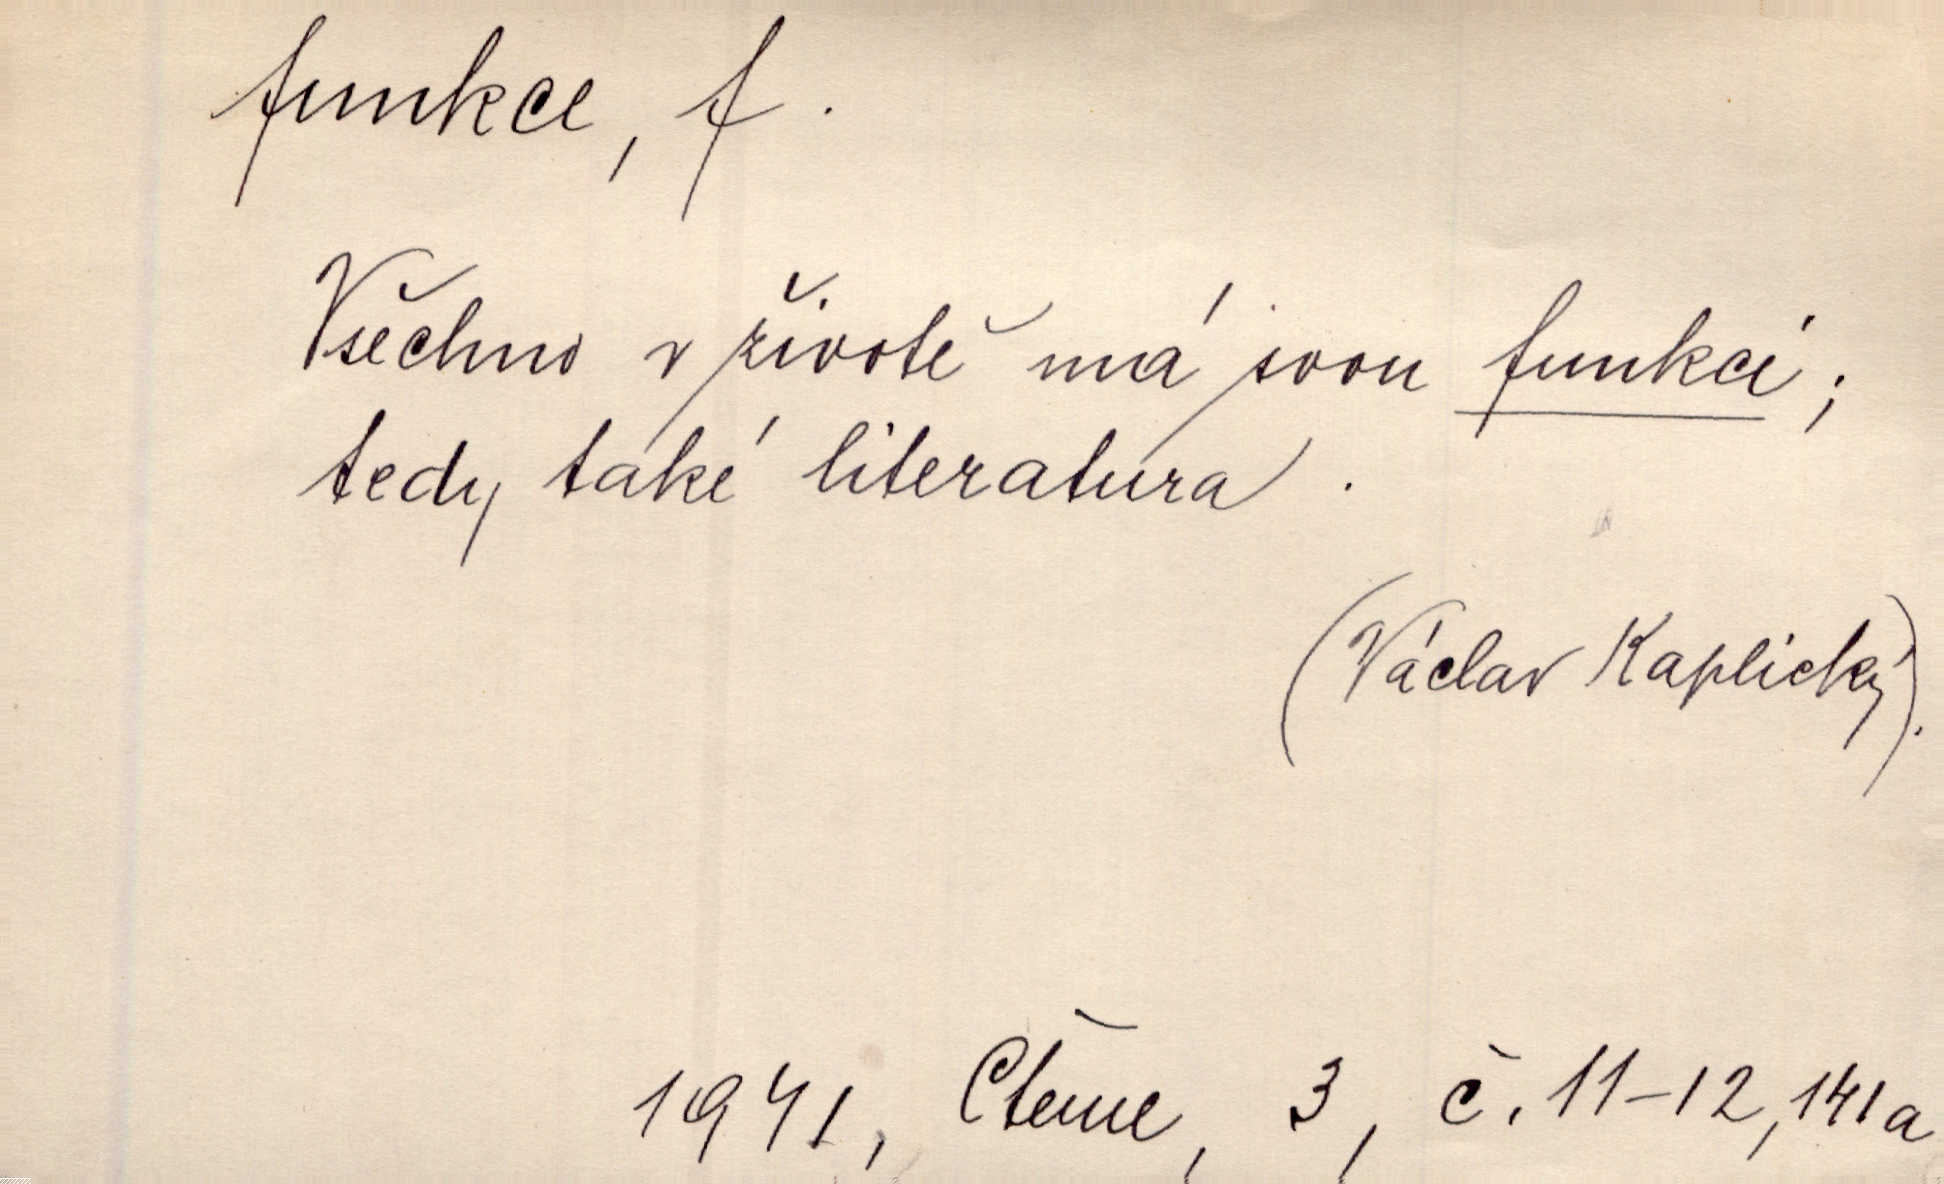 funkce, f.
Všechno v životě má svou funkci;
tedy také literatura.
(Václav Kaplický).
1941, Čteme, 3, č. 11-12, 141a